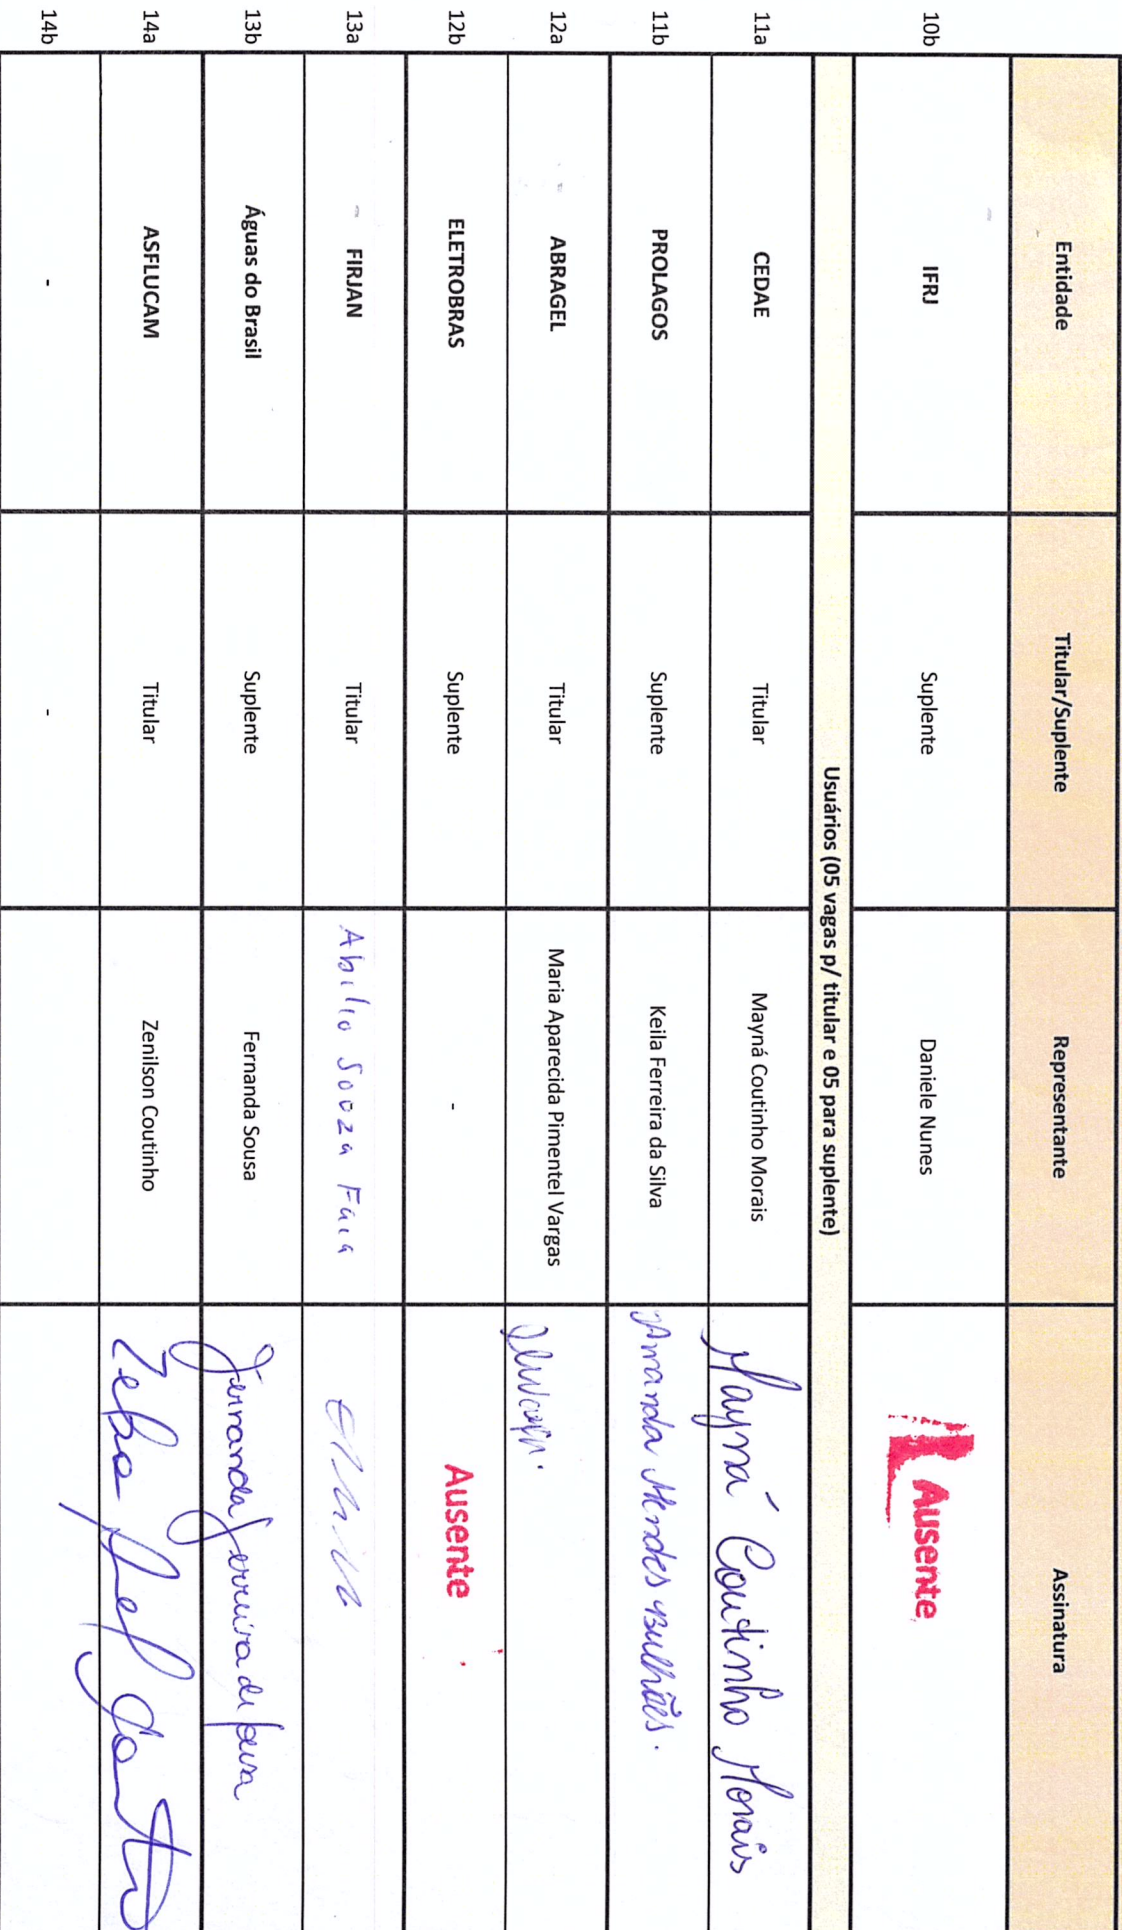 Entidade Titular/Suplente Representante Assinatura
10b IFRJ Suplente Daniele Nunes Ausente
Usuários (05 vagas p/ titular e 05 para suplente)
11a CEDAE Titular Mayná Coutinho Morais Mayná Coutinho Morais
11b PROLAGOS Suplente Keila Ferreira da Silva Amanda Mendes Bulhões.
12a ABRAGEL Titular Maria Aparecida Pimentel Vargas
12b ELETROBRAS Suplente - Ausente
13a FIRJAN Titular Abilio Souza Faria
13b Águas do Brasil Suplente Fernanda Sousa Fernanda Ferreira de
14a ASFLUCAM Titular Zenilson Coutinho
14b - -